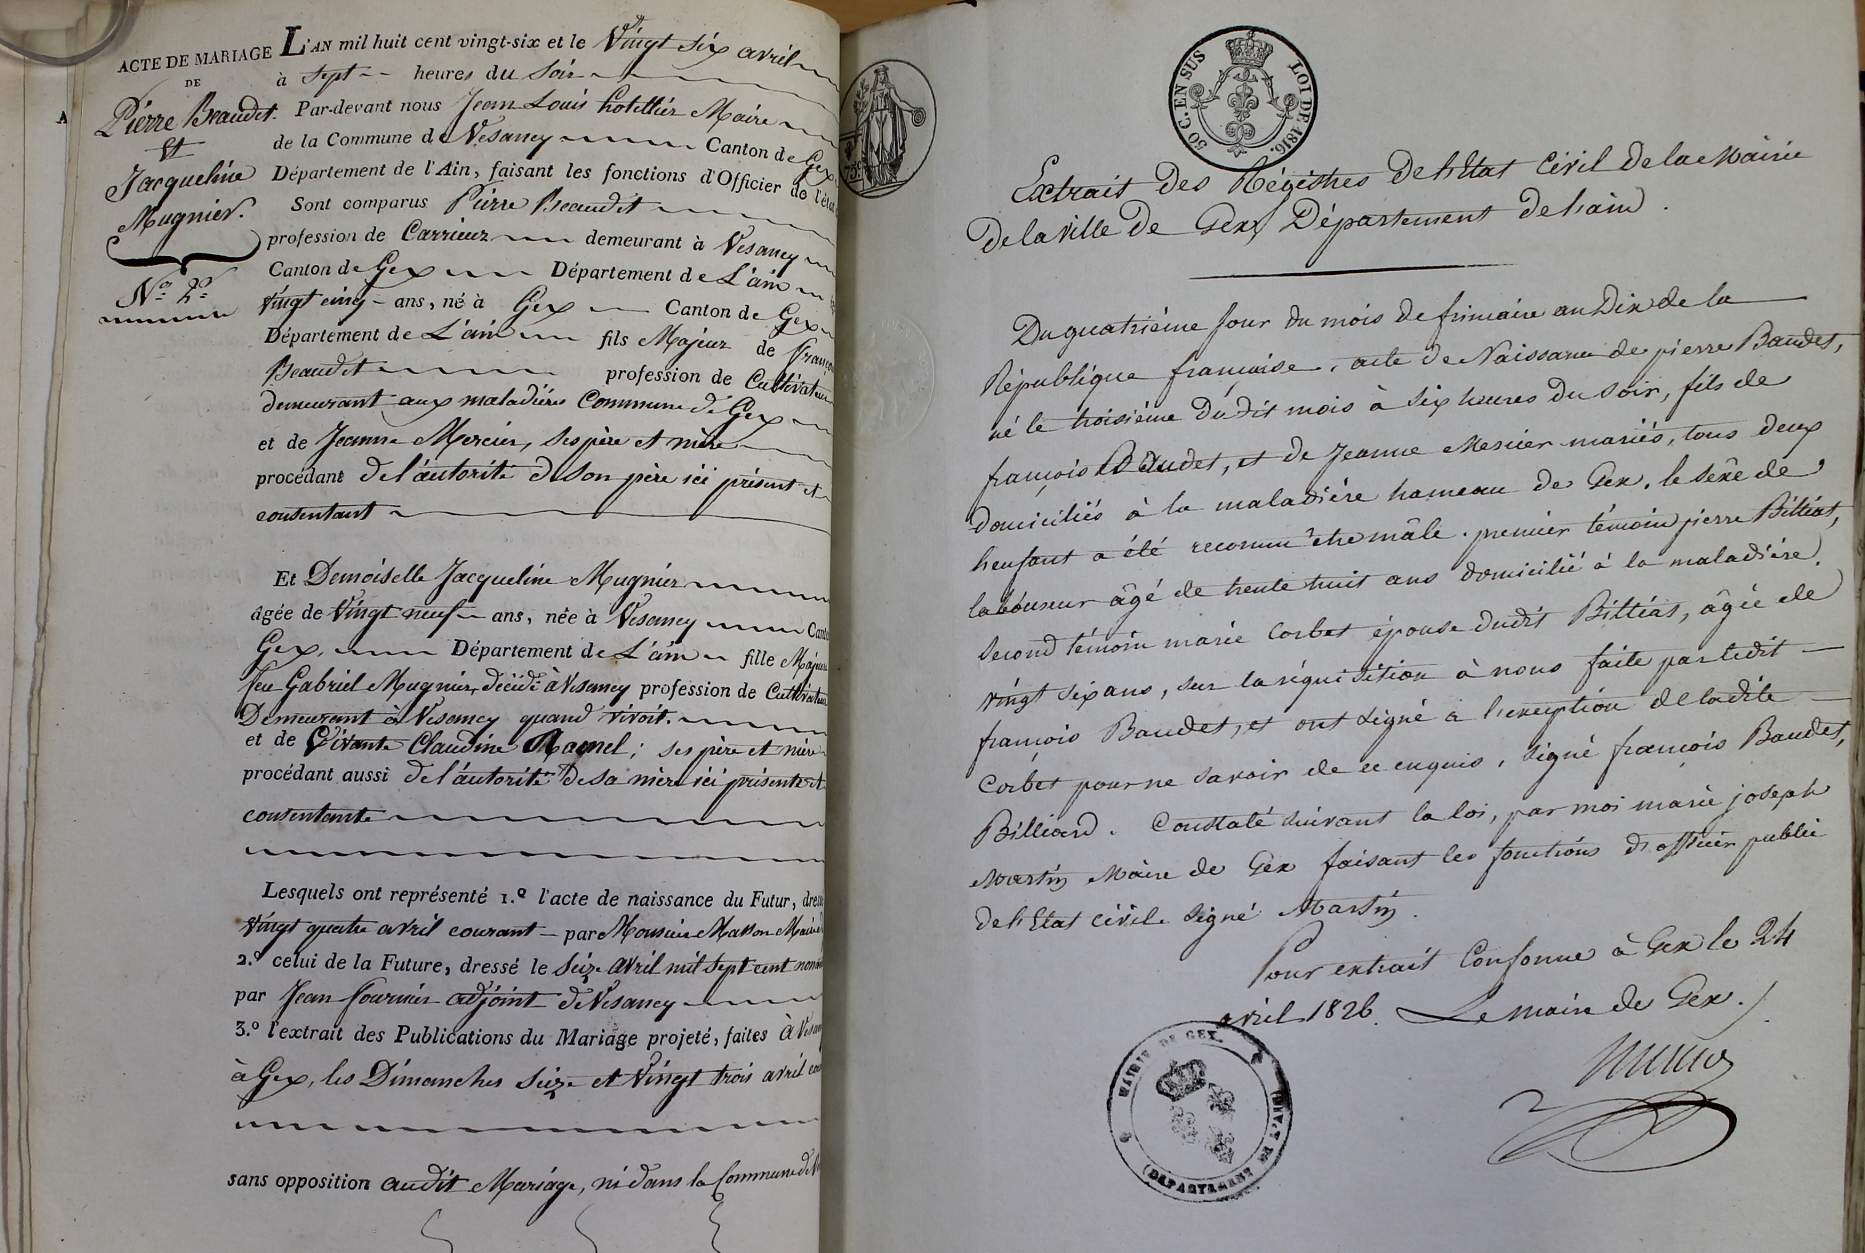 ACTE DE MARIAGE
DE
Pierre Beaudet.
Et
Jacqueline
Mugnier.
N.º 2.º
L'AN mil huit cent vingt-six et le Vingt six avril
à sept heures du Soir
Par-devant nous Jean Louis hotellier Maire
de la Commune de Vesancy Canton de Gex
Département de l'Ain, faisant les fonctions d'Officier de l'état
Sont comparus Pierre Beaudet
profession de Carrieur demeurant à Vesancy
Canton de Gex Département de L'ain
Vingt cinq ans, né à Gex Canton de Gex
Département de L'ain fils Majeur de François
Beaudet profession de Cultivateur
demeurant aux maladières Commune de Gex
et de Jeanne Mercier, ses père et mère
procédant de l'autorité de son père ici présent et
consentant
Et Demoiselle Jacqueline Mugnier
âgée de Vingt neuf ans, née à Vesancy Canto
Gex, Département de L'ain fille Majeure
feu Gabriel Mugnier, décédé à Vesancy profession de Cultivateur
Demeurant à Vesancy quand vivoit.
et de Vivante Claudine Ramel; ses père et mère
procédant aussi de l'autorité de sa mère ici présente et
consentante
Lesquels ont représenté 1.º l'acte de naissance du Futur, dressé
Vingt quatre avril courant par Monsieur Masson Maire
2.º celui de la Future, dressé le Seize avril mil sept cent
par Jean fournier adjoint de Vesancy
3.º l'extrait des Publications du Mariage projeté, faites à Vesancy
à Gex, les Dimanches Seize et Vingt trois avril
sans opposition audit Mariage, ni dans la Commune de
75 c
50 C. EN SUS
LOI DE 1816.
Extrait des Régistres de l'Etat Civil de la Mairie
de la ville de Gex, Département de l'ain.
Du quatrième jour du mois de frimaire an Dix de la
République française, acte de Naissance de pierre Baudet,
né le troisième dudit mois à six heures du soir, fils de
françois Baudet, et de Jeanne Mercier mariés, tous deux
domiciliés à la maladière hameau de Gex, le sexe de
l'enfant a été reconnu être mâle. premier témoin pierre Billiat,
laboureur âgé de trente huit ans domicilié à la maladière.
Second témoin marie Corbet épouse dudit Billiat, âgée de
vingt six ans, sur la réquisition à nous faite par ledit
françois Baudet, et ont signé à l'exception de ladite
Corbet pour ne savoir de ce enquis, signé françois Baudet,
Billiard. Constaté suivant la loi, par moi marie joseph
Martin Maire de Gex faisant les fonctions d'officier public
de l'Etat civil. signé Martin.
Pour extrait Conforme à Gex le 24
avril 1826. Le maire de Gex.
MAIRIE DE GEX.
(DÉPARTEMENT DE L'AIN)